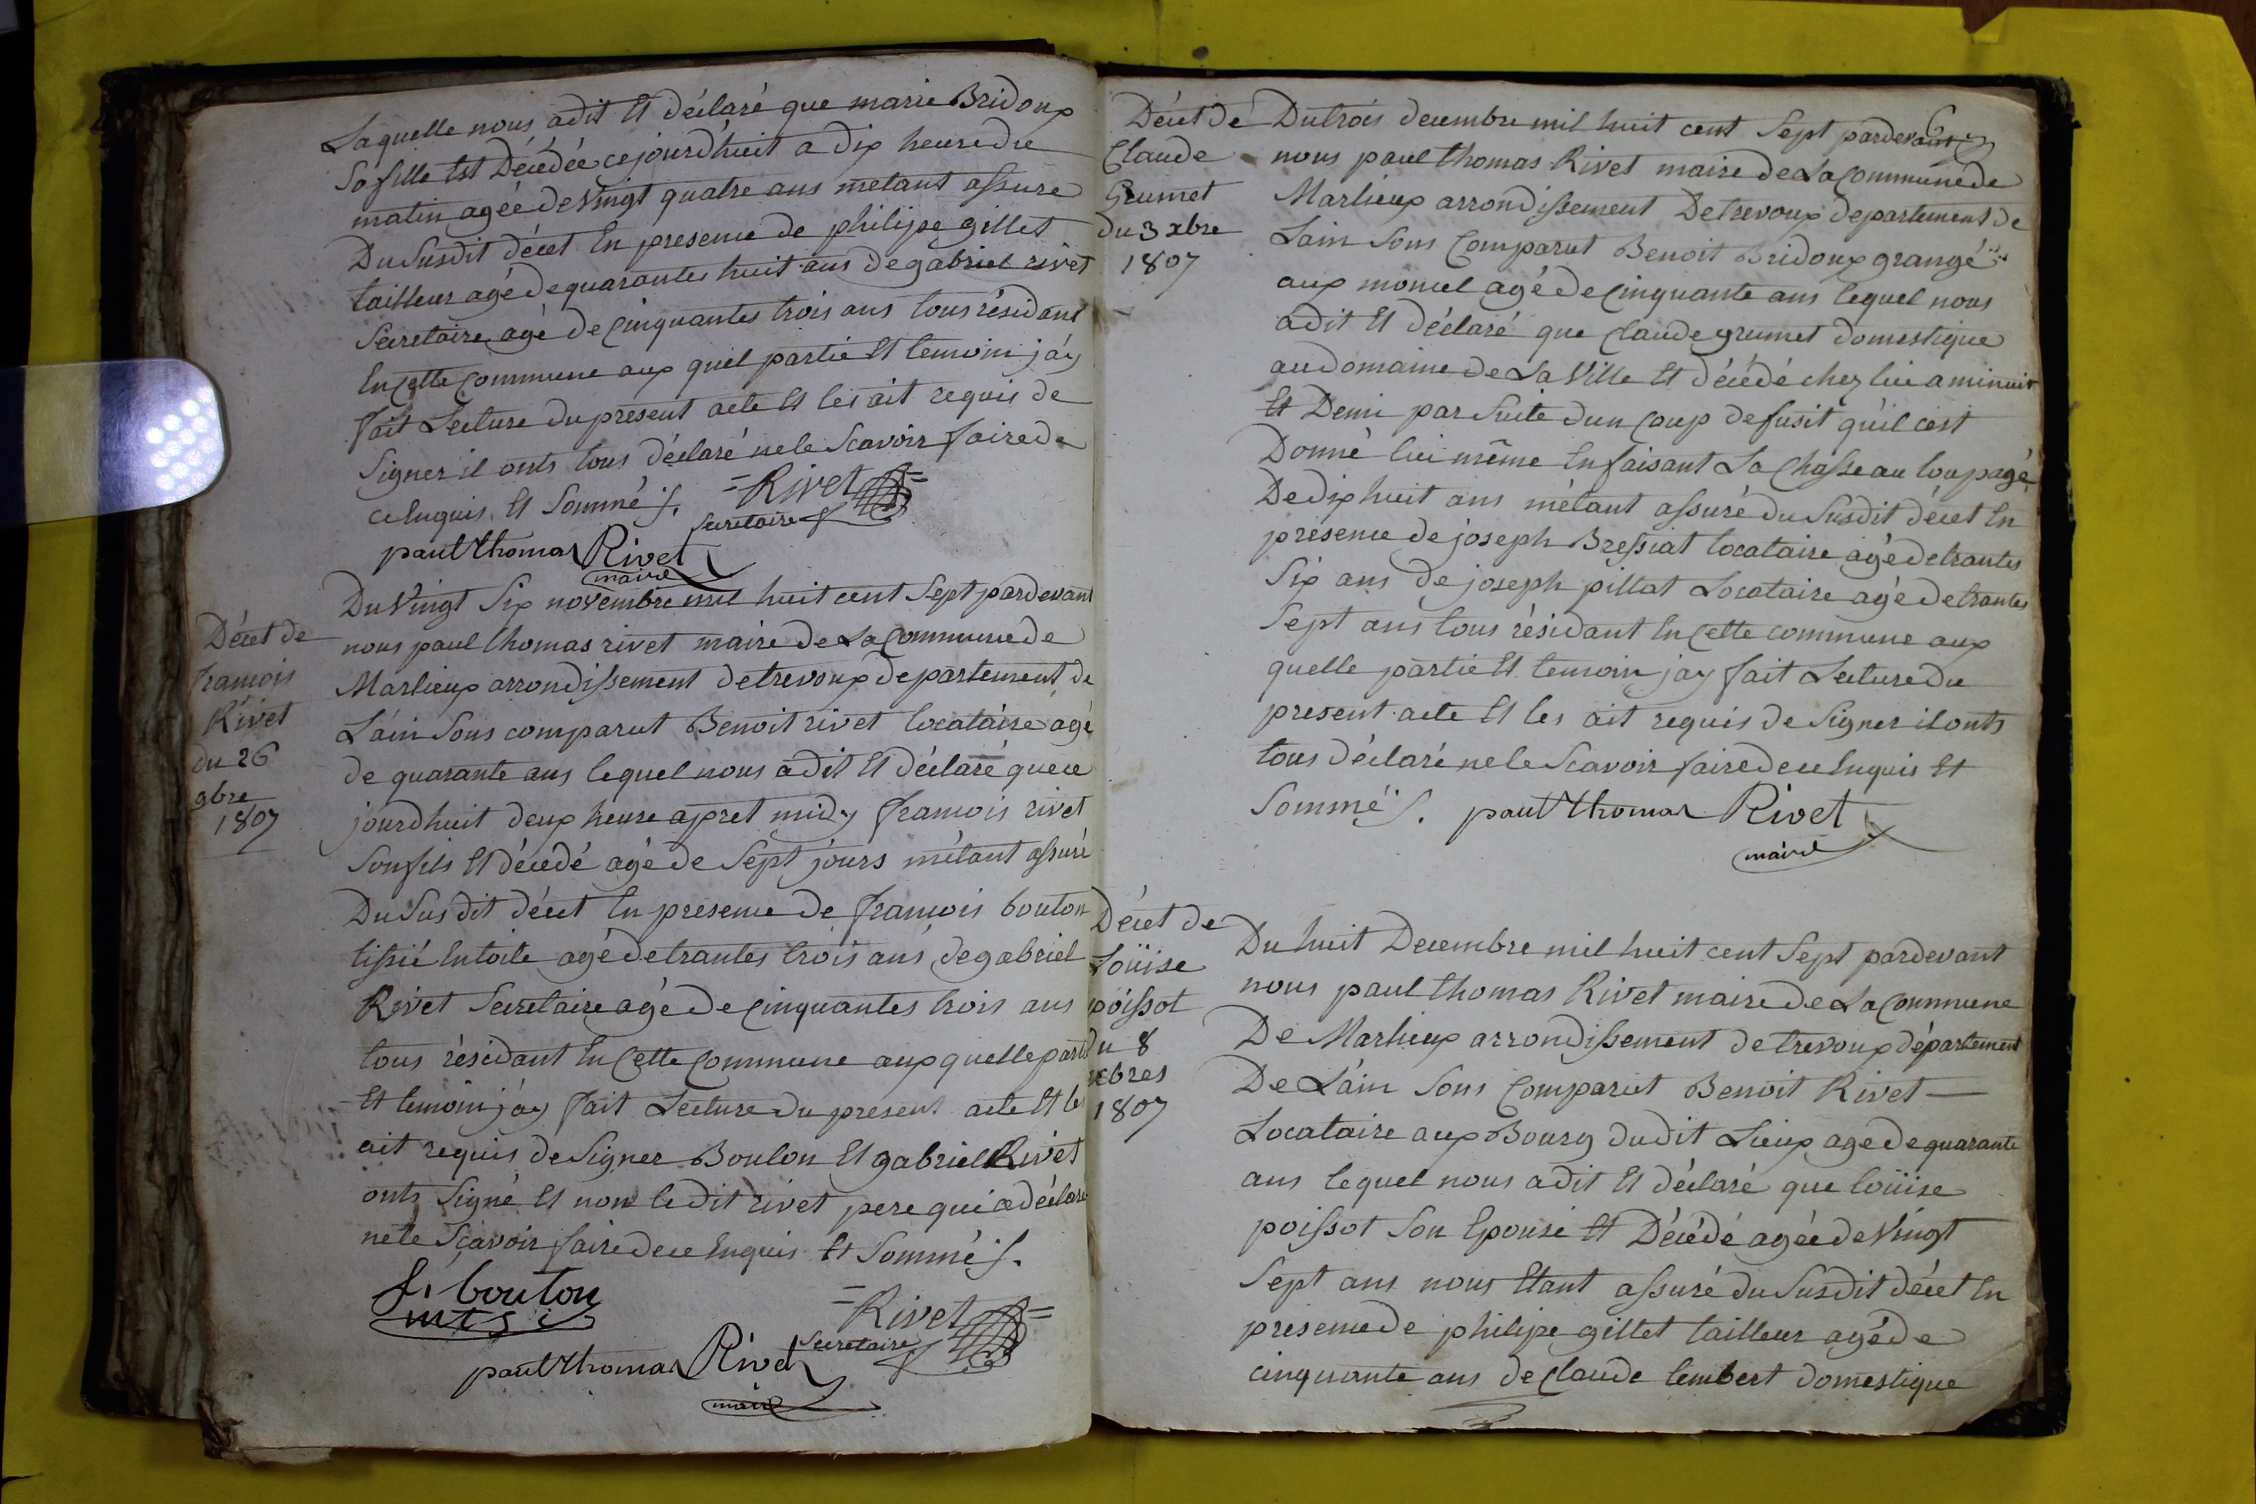 Laquelle nous adit Et déclaré que marie Bridoux
Sa fille Est Décédée cejourd'huit a dix heure du
matin agéé de Vingt quatre ans metant assure
Du Susdit décet En presence de philipe gillet
tailleur agé de quarantes huit ans de gabriel rivet
Secretaire agé de Cinquantes trois ans tous résidant
En Cette Commune aux quel partie Et temoin jáy
fait Lecture du present acte Et les ait requis de
Signer il onts tous déclaré nele Scavoir faire de
ce Enquis Et Sommé f. =Rivet=
Secretaire
paul thomas Rivet
maire
Décet de
francois
Rivet
du 26
9bre
1807
Du Vingt Six novembre mil huit cent Sept pardevant
nous paul thomas rivet maire de La Commune de
Marlieux arrondissement de trevoux departement de
L'ain Sons comparut Benoit rivet locataire agé
de quarante ans lequel nous adit Et déclaré que ce
jourdhuit deux heure apret midy francois rivet
Son fils Et décédé agé de Sept jours métant assuré
Du Sus dit décet En presence de francois bouton
tissié Entoile agé de trantes trois ans de gabriel
Rivet Secretaire agé de Cinquantes trois ans
tous résidant En Cette Commune aux quelle parti
Et temoin jáy fait Lecture du present acte Et le
ait requis de Signer Bouton Et gabriel Rivet
onts Signé Et non ledit rivet pere qui a déclaré
nele Sçavoir faire de ce Enquis Et Sommé f.
f. bouton
=Rivet=
Secretaire
paul thomas Rivet
maire
Décet dé
Claude
Grumet
du 3 xbre
1807
Du trois decembre mil huit cent Sept pardevant
nous paul thomas Rivet maire de La Commune de
Marlieux arrondissement De trevoux departement de
Lain Sons Comparut Benoit Bridoux grangé
aux moncel agé de Cinquante ans lequel nous
adit Et déclaré que Claude grumet domestique
au domaine de La Ville Et décédé chez lui a minuit
Et Demi par Suite dun Coup de fusit qu'il cest
Donné lui même En faisant La Chasse au loup agé
De dix huit ans métant assuré du Susdit décet En
présence de joseph Bressiat locataire agé de trantes
Six ans de joseph pillat Locataire agé de trantes
Sept ans tous résidant En Cette commune aux
quelle partie Et temoin jay fait Lecture du
present acte Et les ait requis de Signer il onts
tous déclaré nele Scavoir faire de ce Enquis Et
Sommé f. paul thomas Rivet
maire
Décet de
Loüise
poissot
du 8
xbres
1807
Du huit Decembre mil huit cent Sept pardevant
nous paul thomas Rivet maire de La Commune
De Marlieux arrondissement de trevoux département
De L'ain Sons Comparut Benoit Rivet —
Locataire aux Bourg dudit Lieux age de quarante
ans lequel nous adit Et déclaré que loüise
poissot Son Epouse Et Décédé agéé de Vingt
Sept ans nous Etant assuré du Susdit décet En
presence de philipe gillet tailleur agé de
cinquante ans de Claude lembert domestique